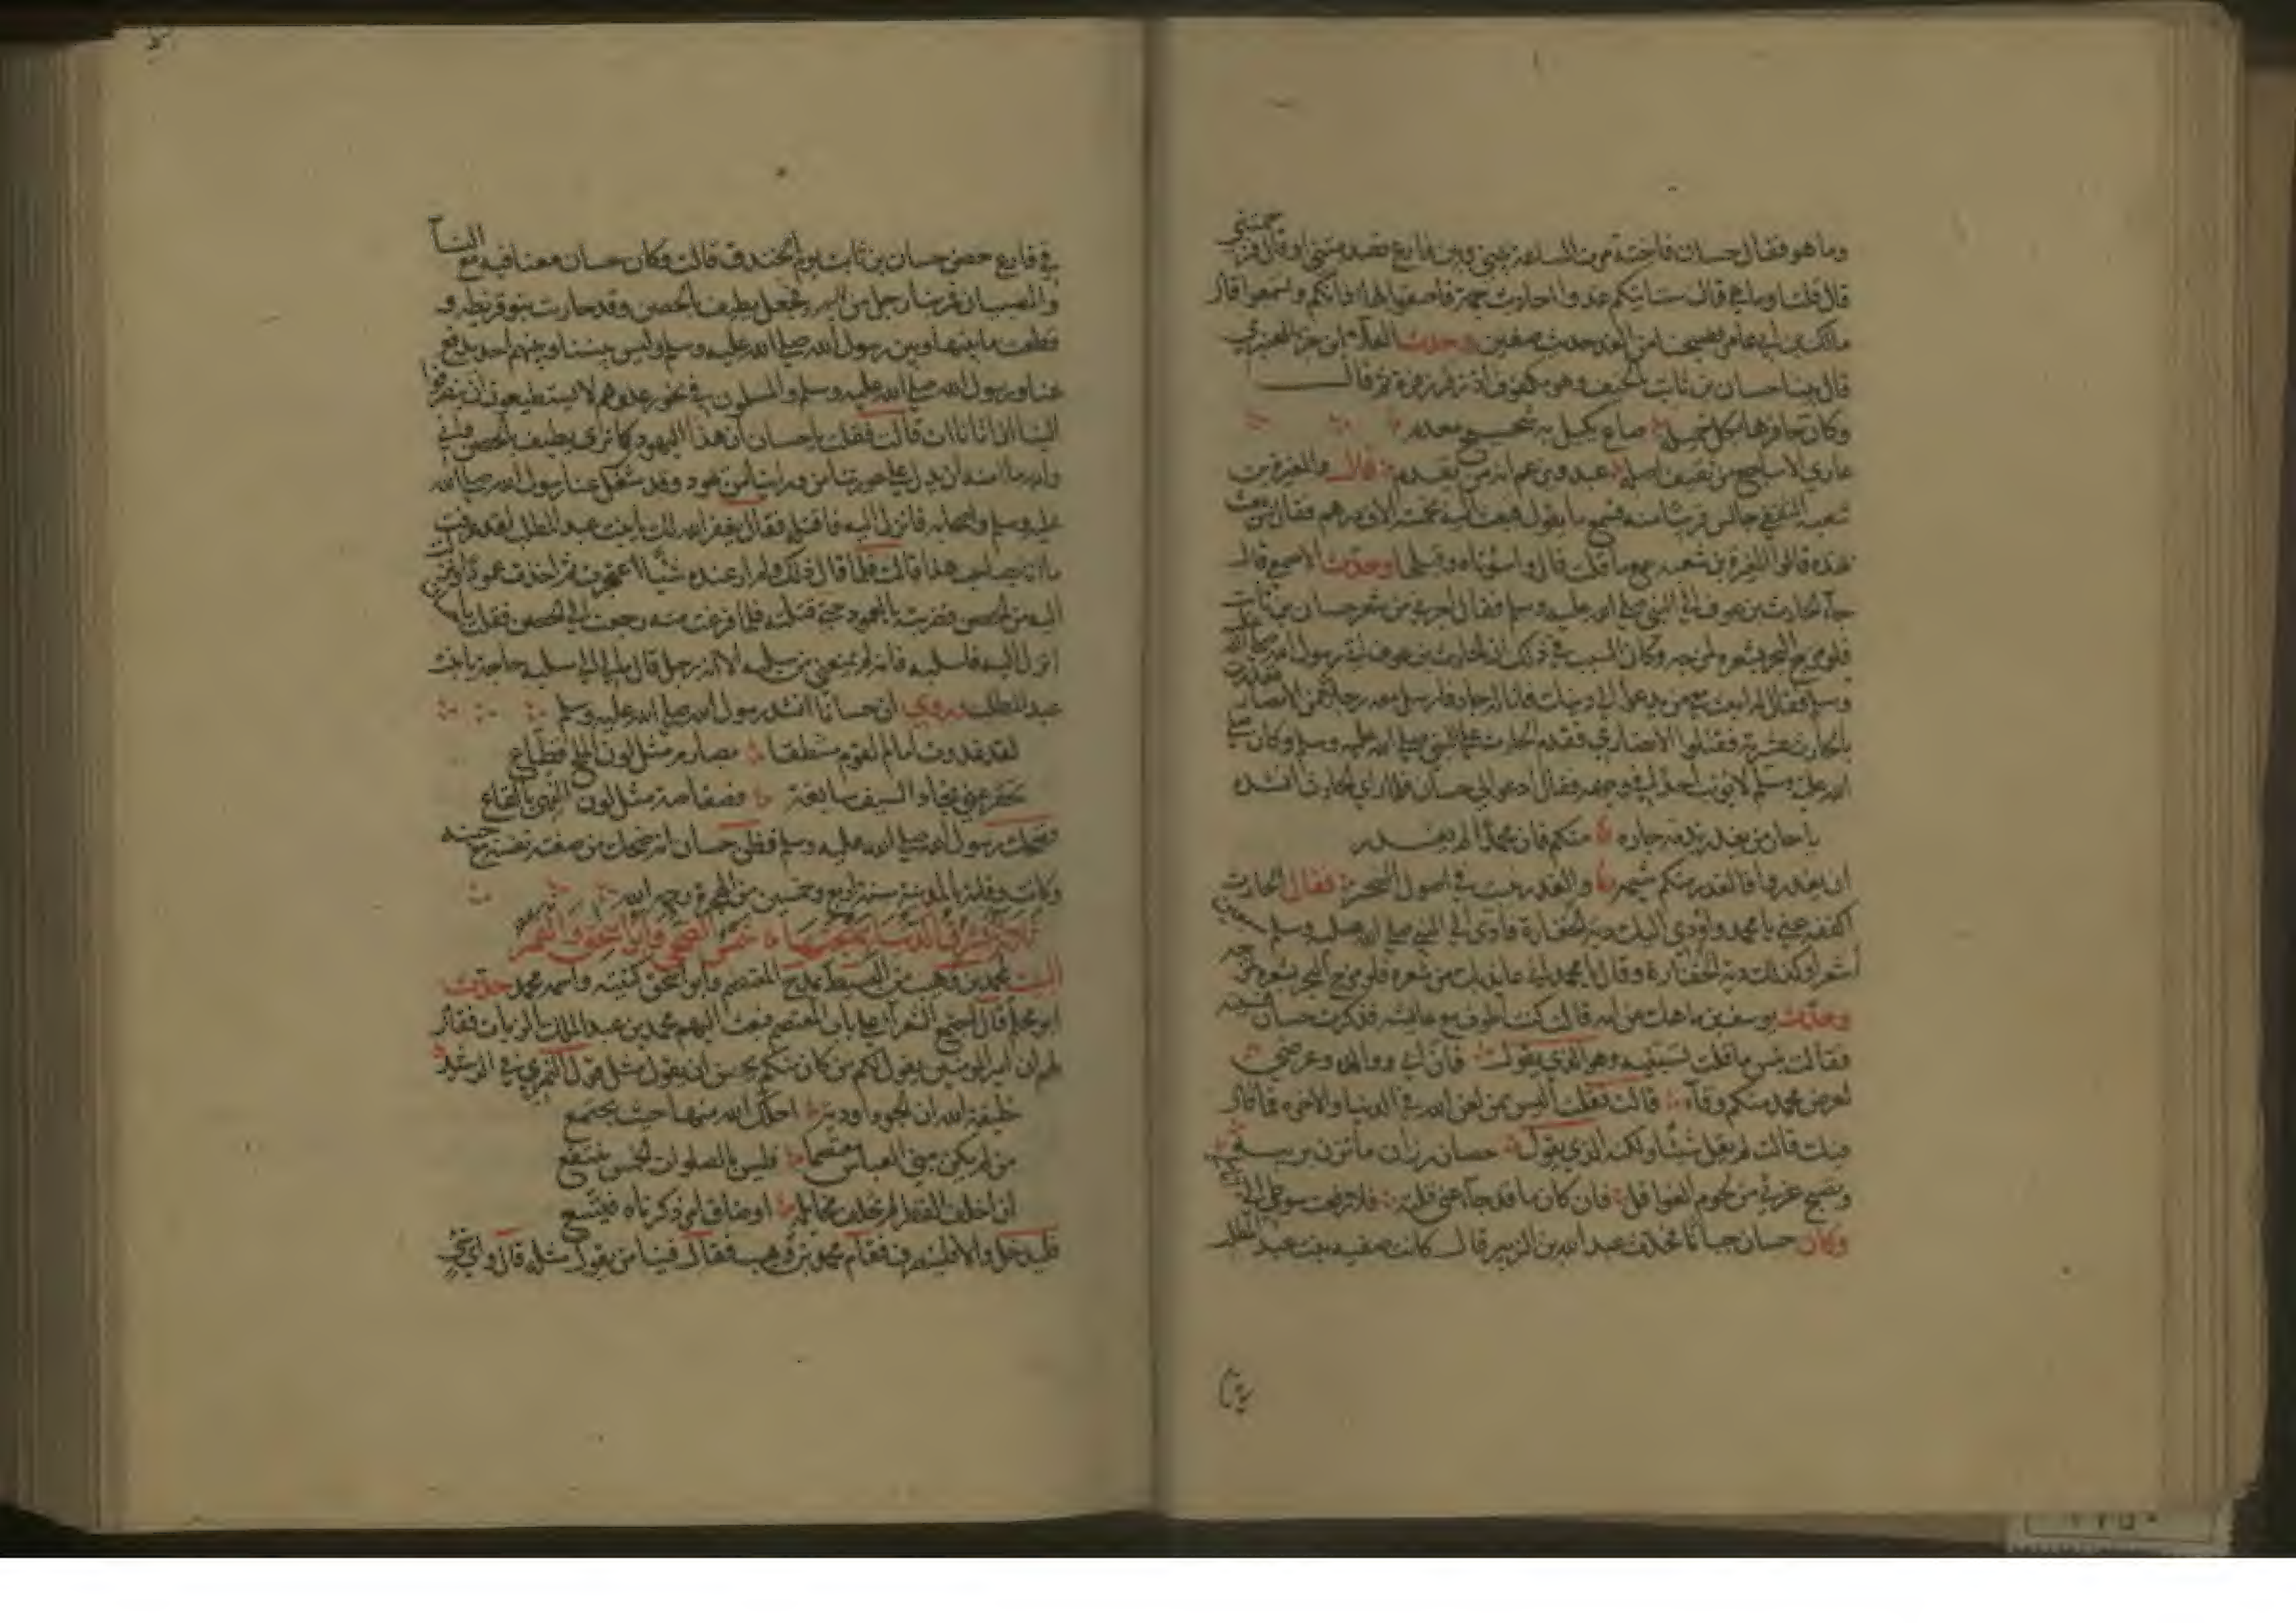 وما هو فقال حسان فاختة مرت الساعة بيني وبين فارع فصدمتني او قال فزحمتني
قال قلنا وما هي قال ستاتيكم غدوا احاديث جمة فاصغوا لها اذانكم وتسمعوا قال
مالك بن ابي عامر فصبحنا من الغد حديث صفين وحدث العلاء بن جزء العنبري
قال بينا حسان بن ثابت بالخيف وهو مكفوف اذ زفر زفرة ثم قال
وكان حافرها بكل خميلة صاع يكيل به شحيح معدم
عاري الاشاجع من ثقيف اصله عبد ويزعم انه من يقدم قال والمغيرة بن
شعبة الثقفي جالس قريبا منه فسمع ما يقول فبعث اليه بخمسة الاف درهم فقال من بعث
بهذه قالوا المغيرة بن شعبة سمع ما قلت قال واسوتاه وقبلها وحدث الاصمعي قال
جاء الحارث بن عوف الى النبي صلى الله عليه وسلم فقال اجرني من شعر حسان بن ثابت
فلو مزج البحر بشعره لمزجه وكان السبب في ذلك ان الحارث بن عوف اتى رسول الله صلى الله عليه
وسلم فقال ابعث معي من يدعو الى دينك فانا له جار فارسل معه رجلا من الانصار فغدرت
بالحارث عشيرته فقتلوا الانصاري فقدم الحارث على النبي صلى الله عليه وسلم وكان صلى
الله عليه وسلم لا يؤنب احدا في وجهه فقال ادعوا لي حسان فلما راى الحارث انشده
يا حار من يغدر بذمة جاره منكم فان محمدا لم يغدر
ان تغدروا فالغدر منكم شيمة والغدر ينبت في اصول السخبر فقال الحارث
اكففه عني يا محمد واؤدي اليك دية الخفارة فادى الى النبي صلى الله عليه وسلم سبعين
عشراء وكذلك دية الخفارة وقال يا محمد اني عائذ بك من شعره فلو مزج البحر بشعره مزجه
وحدث يوسف بن ماهك عن امه قالت كنت اطوف مع عائشة فذكرت حسان فسببته
فقالت بئس ما قلت تسبينه وهو الذي يقول فان ابي ووالده وعرضي
لعرض محمد منكم وقاء قالت فقلت اليس ممن لعن الله في الدنيا والاخرة بما قال
فيك قالت لم يقل شيئا ولكنه الذي يقول حصان رزان ما تزن بريبة
وتصبح غرثى من لحوم الغوافل فان كان ما قد جاء عني قلته فلا رفعت سوطي الي اناملي
وكان حسان جبانا فحدث عبد الله بن الزبير قال كانت صفية بنت عبد المطلب
في فارع حصن حسان بن ثابت يوم الخندق قالت وكان حسان معنا فيه مع النساء
والصبيان فمر بنا رجل من اليهود فجعل يطيف بالحصن وقد حاربت بنو قريظة و
قطعت ما بينها وبين رسول الله صلى الله عليه وسلم وليس بيننا وبينهم احد يدفع
عنا ورسول الله صلى الله عليه وسلم والمسلمون في نحور عدوهم لا يستطيعون ان ينصرفوا
الينا ان اتانا ات قالت فقلت يا حسان ان هذا اليهودي كما ترى يطيف بالحصن واني
والله ما امنه ان يدل على عورتنا من وراءنا من يهود وقد شغل عنا رسول الله صلى الله
عليه وسلم واصحابه فانزل اليه فاقتله فقال يغفر الله لك يا بنت عبد المطلب لقد عرفت
ما انا بصاحب هذا قالت فلما قال ذلك ولم ار عنده شيئا اعتجرت ثم اخذت عمودا ونزلت
اليه من الحصن فضربته بالعمود حتى قتلته فلما فرغت منه رجعت الى الحصن فقلت يا حسان
انزل اليه فاسلبه فانه لم يمنعني من سلبه الا انه رجل قال ما لي الى سلبه حاجة يا بنت
عبد المطلب وروي ان حسانا انشد رسول الله صلى الله عليه وسلم
لقد غدوت امام القوم منتطقا بصارم مثل لون الملح قطاع
تحفز عني نجاد السيف سابغة فضفاضة مثل لون النهي بالقاع
فضحك رسول الله صلى الله عليه وسلم فظن حسان انه ضحك من صفته نفسه مع جبنه
وكانت وفاته بالمدينة سنة اربع وخمسين من الهجرة رحمه الله
ثلاثة تشرق الدنيا ببهجتها شمس الضحى وابو اسحق والقمر
البيت لمحمد بن وهيب من البسيط يمدح المعتصم وابو اسحق كنيته واسمه محمد حدث
ابو محلم قال اجتمع الشعراء على باب المعتصم فبعث اليهم محمد بن عبد الملك الزيات فقال
لهم ان امير المؤمنين يقول لكم من كان منكم يحسن ان يقول مثل قول النمري في الرشيد
خليفة الله ان الجود اودية احلك الله منها حيث تجتمع
من لم يكن ببني العباس معتصما فليس بالصلوات الخمس ينتفع
ان اخلف القطر لم تخلف مخايله او ضاق امر ذكرناه فيتسع
فليدخل والا فلينصرف فقام محمد بن وهيب فقال فينا من يقول مثله قال واي شيء